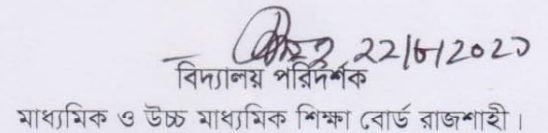 ২২/৮/২০২০
বিদ্যালয় পরিদর্শক
মাধ্যমিক ও উচ্চ মাধ্যমিক শিক্ষা বোর্ড রাজশাহী।